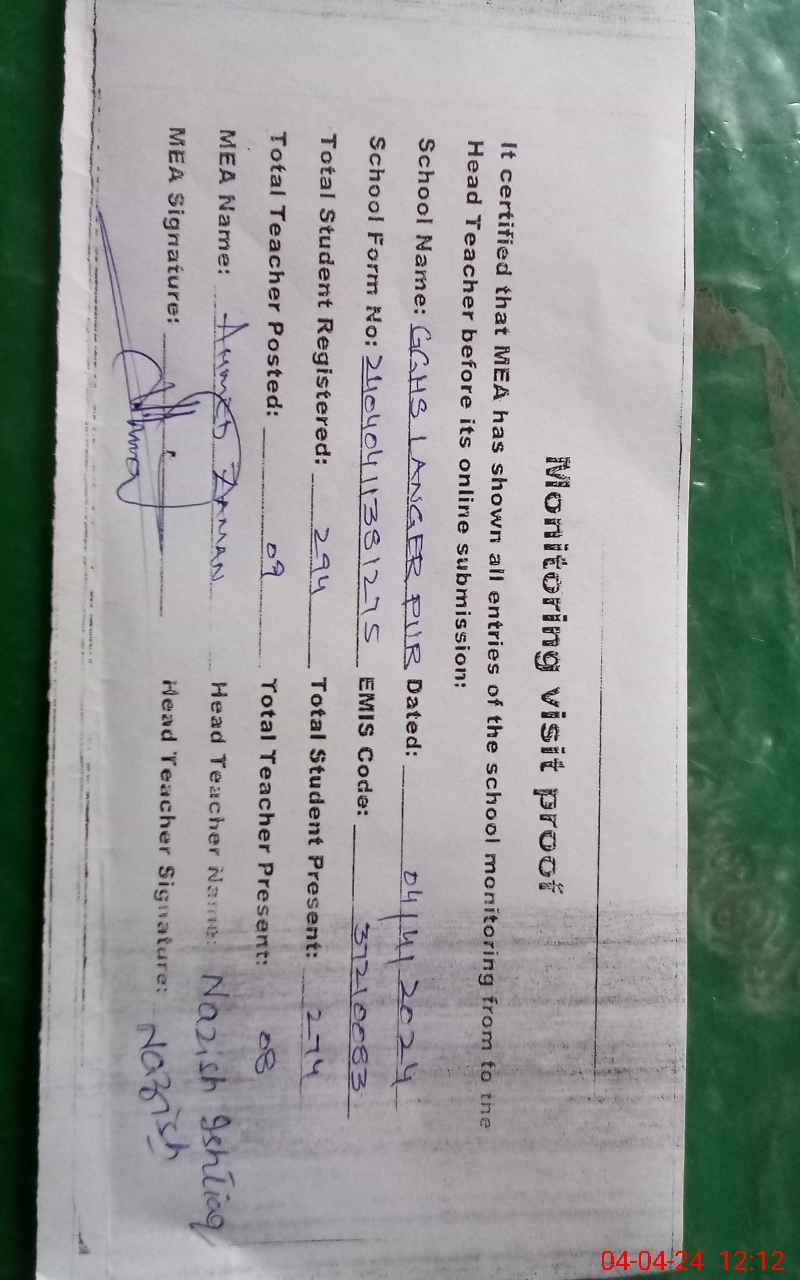 Monitoring visit proof
It certified that MEA has shown all entries of the school monitoring from to the
Head Teacher before its online submission:
School Name: GGHS LANGER PUR Dated: 04/4/2024
School Form No: EMIS Code: 37210083
Total Student Registered: 294 Total Student Present: 274
Total Teacher Posted: 09 Total Teacher Present: 08
MEA Name: Ahmed Zaman Head Teacher Name: Nazish Ishtiaq
MEA Signature: Head Teacher Signature: Nazish
04-04-24 12:12